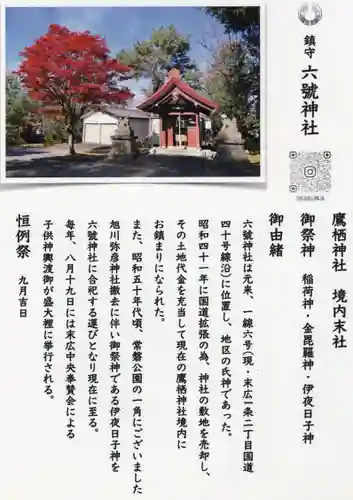 鎮守 六號神社
鷹栖神社 境内末社
御祭神 稲荷神・金毘羅神・伊夜日子神
御由緒
六號神社は元来、一線六号(現・末広一条二丁目国道
四十号線沿)に位置し、地区の氏神であった。
昭和四十一年に国道拡張の為、神社の敷地を売却し、
その土地代金を充当して現在の鷹栖神社境内に
お鎮まりになられた。
また、昭和五十年代頃、常磐公園の一角にございました
旭川弥彦神社撤去に伴い御祭神である伊夜日子神を
六號神社に合祀する運びとなり現在に至る。
毎年、八月十九日には末広中央奉賛会による
子供神輿渡御が盛大裡に挙行される。
恒例祭 九月吉日